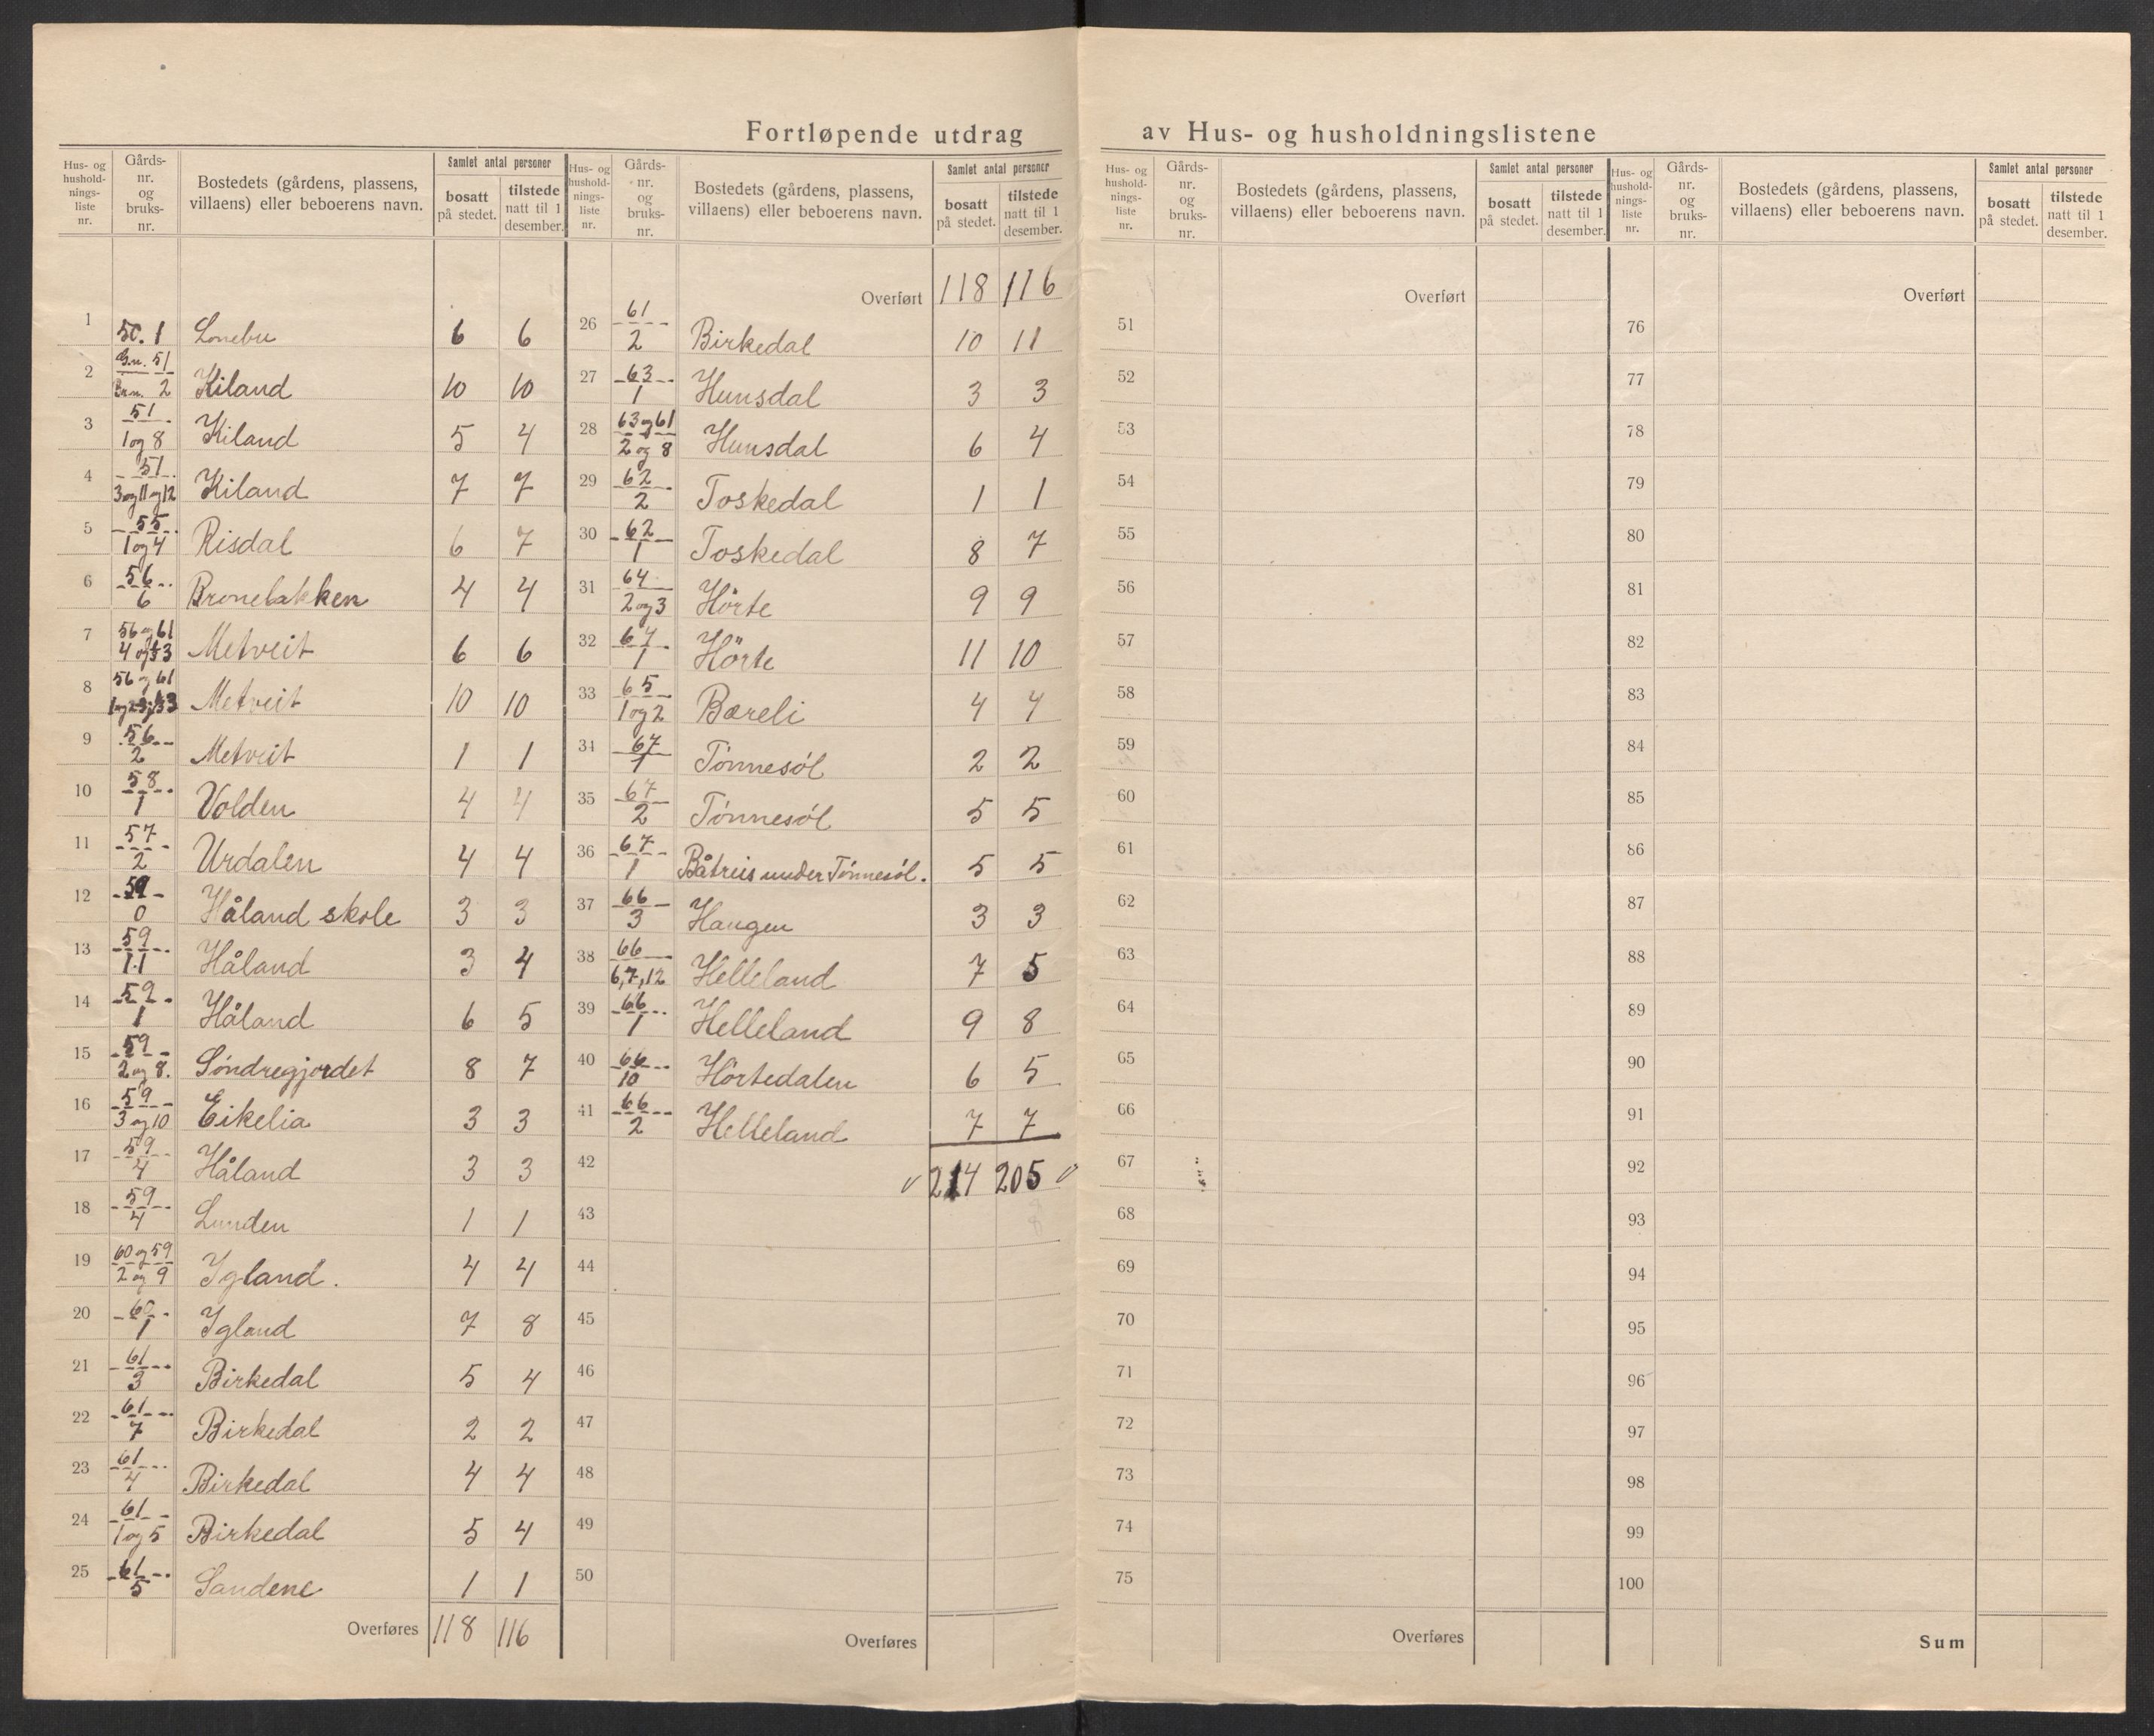 Fortløpende utdrag av Hus- og husholdningslistene
Hus- og husholdnings-liste nr. | Gårds-nr. og bruks-nr. | Bostedets (gårdens, plassens, villaens) eller beboerens navn. | Samlet antal personer bosatt på stedet. | tilstede natt til 1 desember.
1 | 50. 1 | Lonebu | 6 | 6
2 | G.n. 51 Brn. 2 | Kiland | 10 | 10
3 | 51 1 og 8 | Kiland | 5 | 4
4 | 51 3 og 11 og 12 | Kiland | 7 | 7
5 | 55 1 og 4 | Risdal | 6 | 7
6 | 56 6 | Bronebakken | 4 | 4
7 | 56 og 61 | Metveit | 6 | 6
8 | 56 og 61 | Metveit | 10 | 10
9 | 56 2 | Metveit | 1 | 1
10 | 58 1 | Volden | 4 | 4
11 | 57 2 | Urdalen | 4 | 4
12 | 59 0 | Håland skole | 3 | 3
13 | 59 11 | Håland | 3 | 4
14 | 59 1 | Håland | 6 | 5
15 | 59 2 og 8. | Søndregjordet | 8 | 7
16 | 59 3 og 10 | Eikelia | 3 | 3
17 | 59 4 | Håland | 3 | 3
18 | 59 4 | Lunden | 1 | 1
19 | 60 og 59 2 og 9 | Igland. | 4 | 4
20 | 60 1 | Igland | 7 | 8
21 | 61 3 | Birkedal | 5 | 4
22 | 61 7 | Birkedal | 2 | 2
23 | 61 4 | Birkedal | 4 | 4
24 | 61 1 og 5 | Birkedal | 5 | 4
25 | 61 5 | Sandene | 1 | 1
Overføres | 118 | 116
Hus- og husholdnings-liste nr. | Gårds-nr. og bruks-nr. | Bostedets (gårdens, plassens, villaens) eller beboerens navn. | Samlet antal personer bosatt på stedet. | tilstede natt til 1 desember.
Overført | 118 | 116
26 | 61 2 | Birkedal | 10 | 11
27 | 63 1 | Hunsdal | 3 | 3
28 | 63 og 61 2 og 8 | Hunsdal | 6 | 4
29 | 62 2 | Toskedal | 1 | 1
30 | 62 1 | Toskedal | 8 | 7
31 | 64 2 og 3 | Hörte | 9 | 9
32 | 64 1 | Hörte | 11 | 10
33 | 65 1 og 2 | Bæreli | 4 | 4
34 | 67 1 | Tønnesøl | 2 | 2
35 | 67 2 | Tønnesøl | 5 | 5
36 | 67 1 | Båtreis under Tønnesøl. | 5 | 5
37 | 66 3 | Haugen | 3 | 3
38 | 66 6, 7, 12 | Helleland | 7 | 5
39 | 66 1 | Helleland | 9 | 8
40 | 66 10 | Hörtedalen | 6 | 5
41 | 66 2 | Helleland | 7 | 7
42 | 214 | 205
43
44
45
46
47
48
49
50
Overføres
Hus- og husholdnings-liste nr. | Gårds-nr. og bruks-nr. | Bostedets (gårdens, plassens, villaens) eller beboerens navn. | Samlet antal personer bosatt på stedet. | tilstede natt til 1 desember.
Overført
51
52
53
54
55
56
57
58
59
60
61
62
63
64
65
66
67
68
69
70
71
72
73
74
75
Overføres
Hus- og husholdnings-liste nr. | Gårds-nr. og bruks-nr. | Bostedets (gårdens, plassens, villaens) eller beboerens navn. | Samlet antal personer bosatt på stedet. | tilstede natt til 1 desember.
Overført
76
77
78
79
80
81
82
83
84
85
86
87
88
89
90
91
92
93
94
95
96
97
98
99
100
Sum